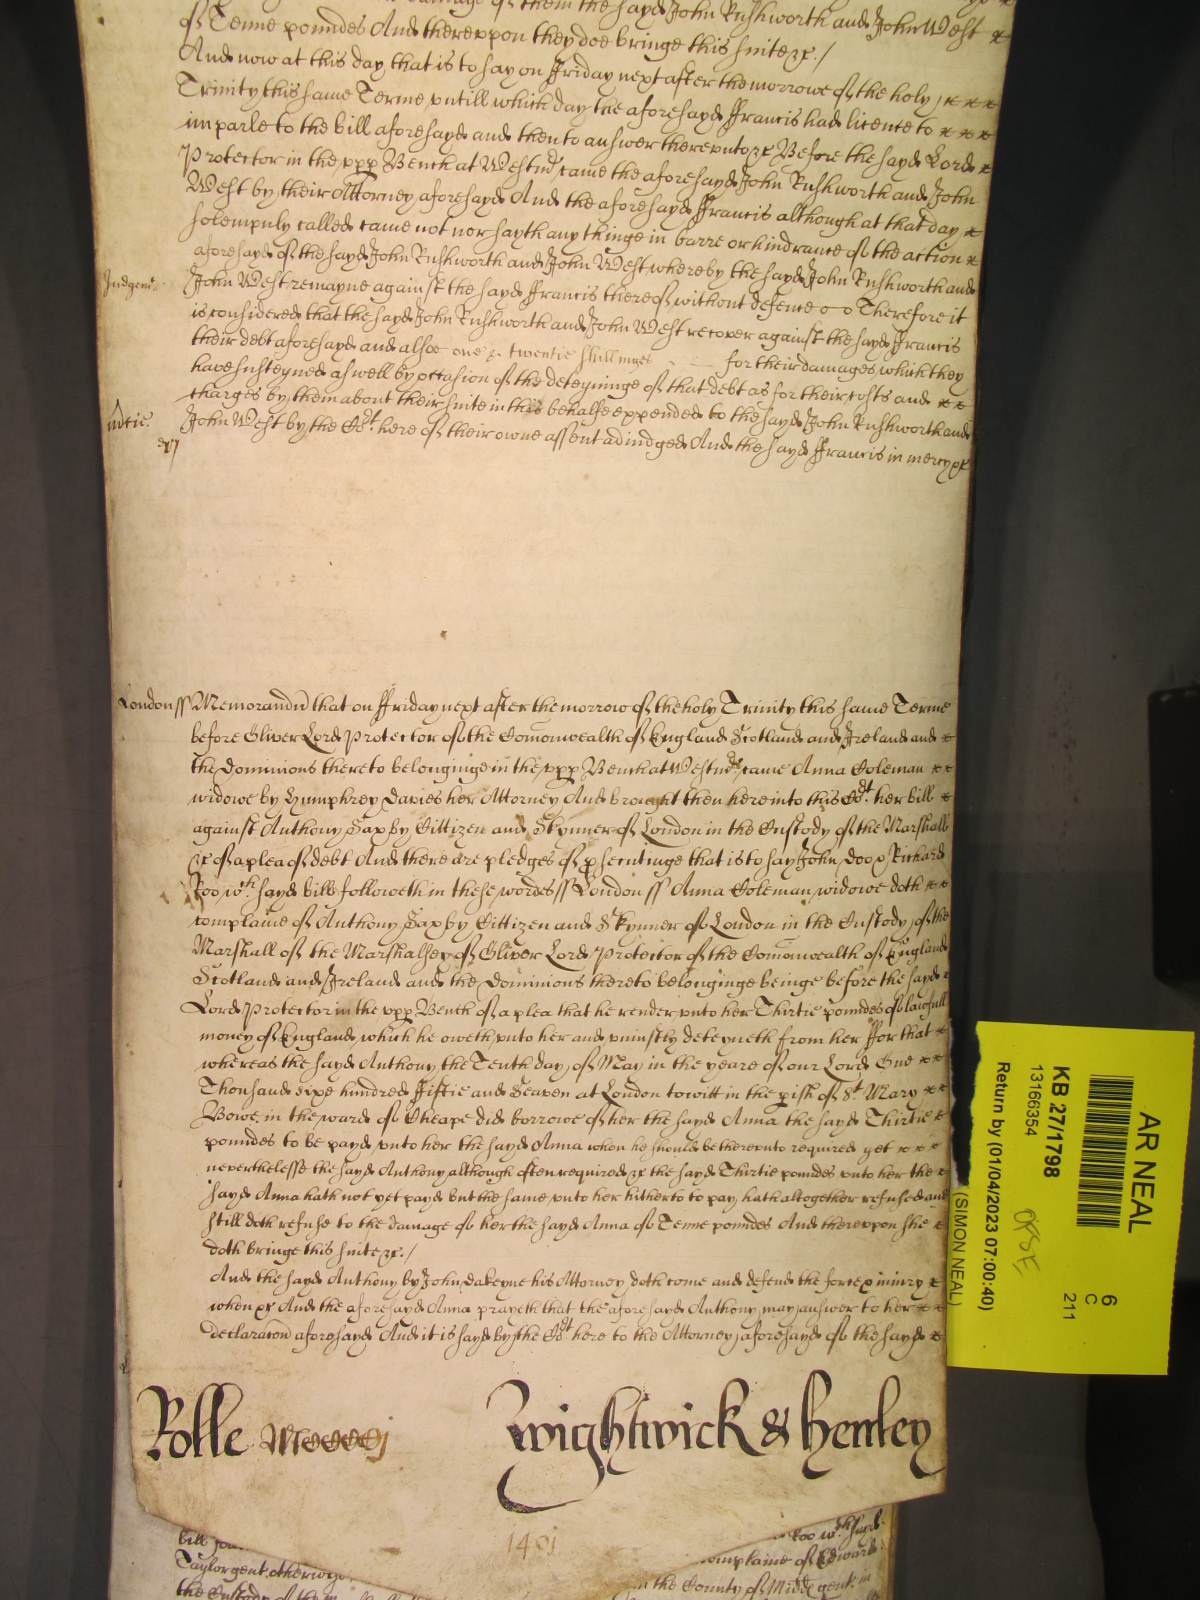 of them the sayd John Rushworth and John West
of Tenne poundes And thereuppon they doe bringe this suite &c./
And now at this day that is to say on Friday next after the morrowe of the holy
Trinity this same Terme untill which day the aforesayd Francis had licence to
imparle to the bill aforesayd and then to answer thereunto &c Before the sayd Lord
Protector in the upp Bench at Westm came the aforesayd John Rushworth and John
West by their Attorney aforesayd And the aforesayd Francis although at that day
solempnly called came not nor sayth any thinge in barre or hindrance of the action
aforesayd of the sayd John Rushworth and John West whereby the sayd John Rushworth and
Judgmt John West remayne against the sayd Francis thereof without defence Therefore it
is considered that the sayd John Rushworth and John West recover against the sayd Francis
their debt aforesayd and alsoe one & twentie shillinges for their damages which they
have susteyned aswell by occasion of the deteyninge of that debt as for their costs and
charges by them about their suite in this behalfe expended to the sayd John Rushworth and
John West by the Cort here of their owne assent adiudged And the sayd Francis in mercy &c
London ss Memorandu that on Friday next after the morrow of the holy Trinity this same Terme
before Oliver Lord Protector of the Comonwealth of England Scotland and Ireland and
the Dominions thereto belonginge in the upp Bench at Westm came Anna Coleman
widowe by Humphrey Davies her Attorney And brought then here into this Cort her bill
against Anthony Saxby Cittizen and Skynner of London in the Custody of the Marshall
&c of a plea of debt And there are pledges of psecutinge that is to say John Doo & Richard
Roo wch sayd bill followeth in these wordes ss London ss Anna Coleman widowe doth
complaine of Anthony Saxby Cittizen and Skynner of London in the Custody of the
Marshall of the Marshalsey of Oliver Lord Protector of the Comonwealth of England
Scotland and Ireland and the Dominions thereto belonginge beinge before the sayd
Lord Protector in the upp Bench of a plea that he render unto her Thirtie poundes of lawfull
money of England which he oweth unto her and uniustly deteyneth from her For that
whereas the sayd Anthony the Tenth day of May in the yeare of our Lord One
Thousand sixe hundred Fiftie and Seaven at London towitt in the pish of St Mary
Bowe in the ward of Cheape did borrowe of her the sayd Anna the sayd Thirtie
poundes to be payd unto her the sayd Anna when he should be thereunto required yet
neverthelesse the sayd Anthony although often required &c the sayd Thirtie poundes unto her the
sayd Anna hath not yet payd but the same unto her hitherto to pay hath altogether refused and
still doth refuse to the damage of her the sayd Anna of Tenne poundes And thereuppon she
doth bringe this suite &c./
And the sayd Anthony by John Dakeyne his Attorney doth come and defend the force & iniury
when &c And the aforesayd Anna prayeth that the aforesayd Anthony may answer to her
declaracon aforesayd And it is sayd by the Cort here to the Attorney aforesayd of the sayd
Rolle Wightwick & Henley
1401
Roo wch sayd
complaine of Edward
Taylor gent otherwise
in the County of Midd gent in
the Custody of the
AR NEAL
KB 27/1798
13166354
Return by (01/04/2023 07:00:40)
(SIMON NEAL)
6
C
211